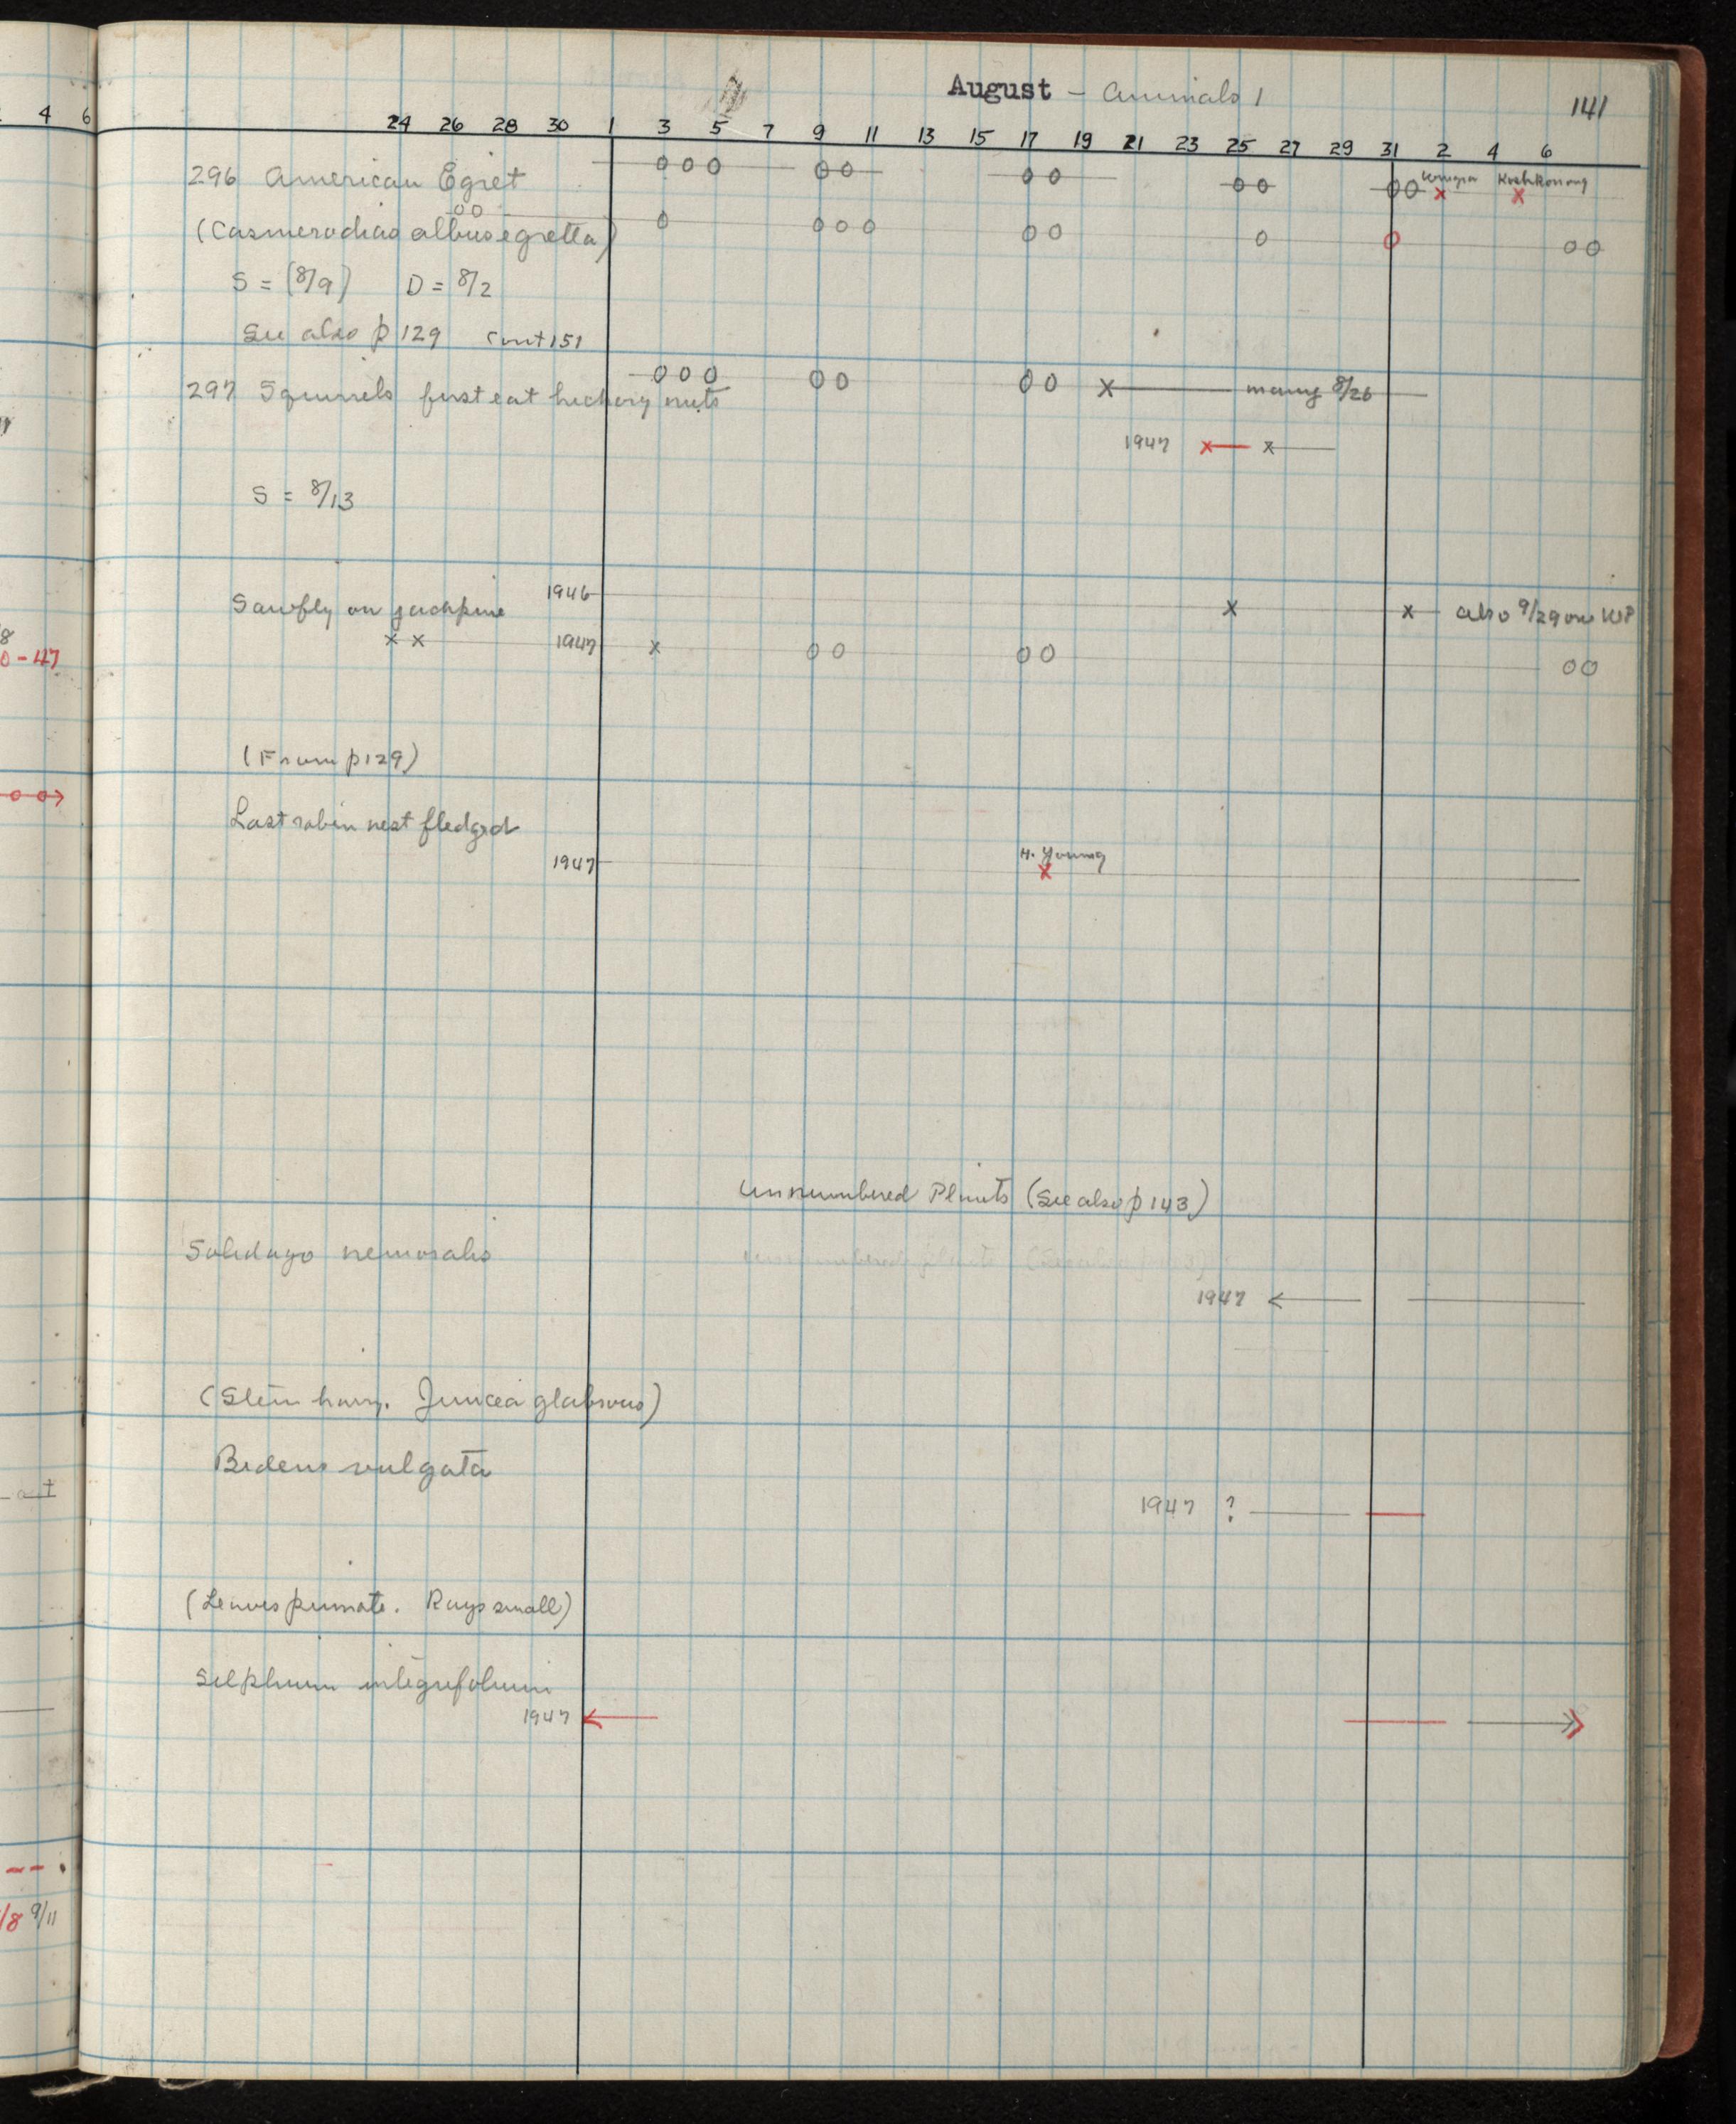 August – Animals 1
141
4 6
24 26 28 30 1 3 5 7 9 11 13 15 17 19 21 23 25 27 29 31 2 4 6
296 American Egret o o o o o o o o o o o x Koshkonong x
o o
(Casmerodias albus egretta) o o o o o o o o o o
S = (8/9) D = 8/2
See also p 129 Cont 151
297 Squirrels first eat hickory nuts o o o o o o o x many 8/26
1947 x x
S = 8/13
1946
Sawfly on jackpine x x also 9/29 on WP
x x 1947 x o o o o o o
8
0-47
(From p129)
o o
Last robin nest fledged
H. Young
1947 x
Unnumbered Plants (See also p 143)
Solidago nemoralis
1947
(Stem hairy. Juncea glabrous)
Bidens vulgata
1947 ?
(Leaves pinnate. Rays small)
Silphium integrifolium
1947
/8 9/11